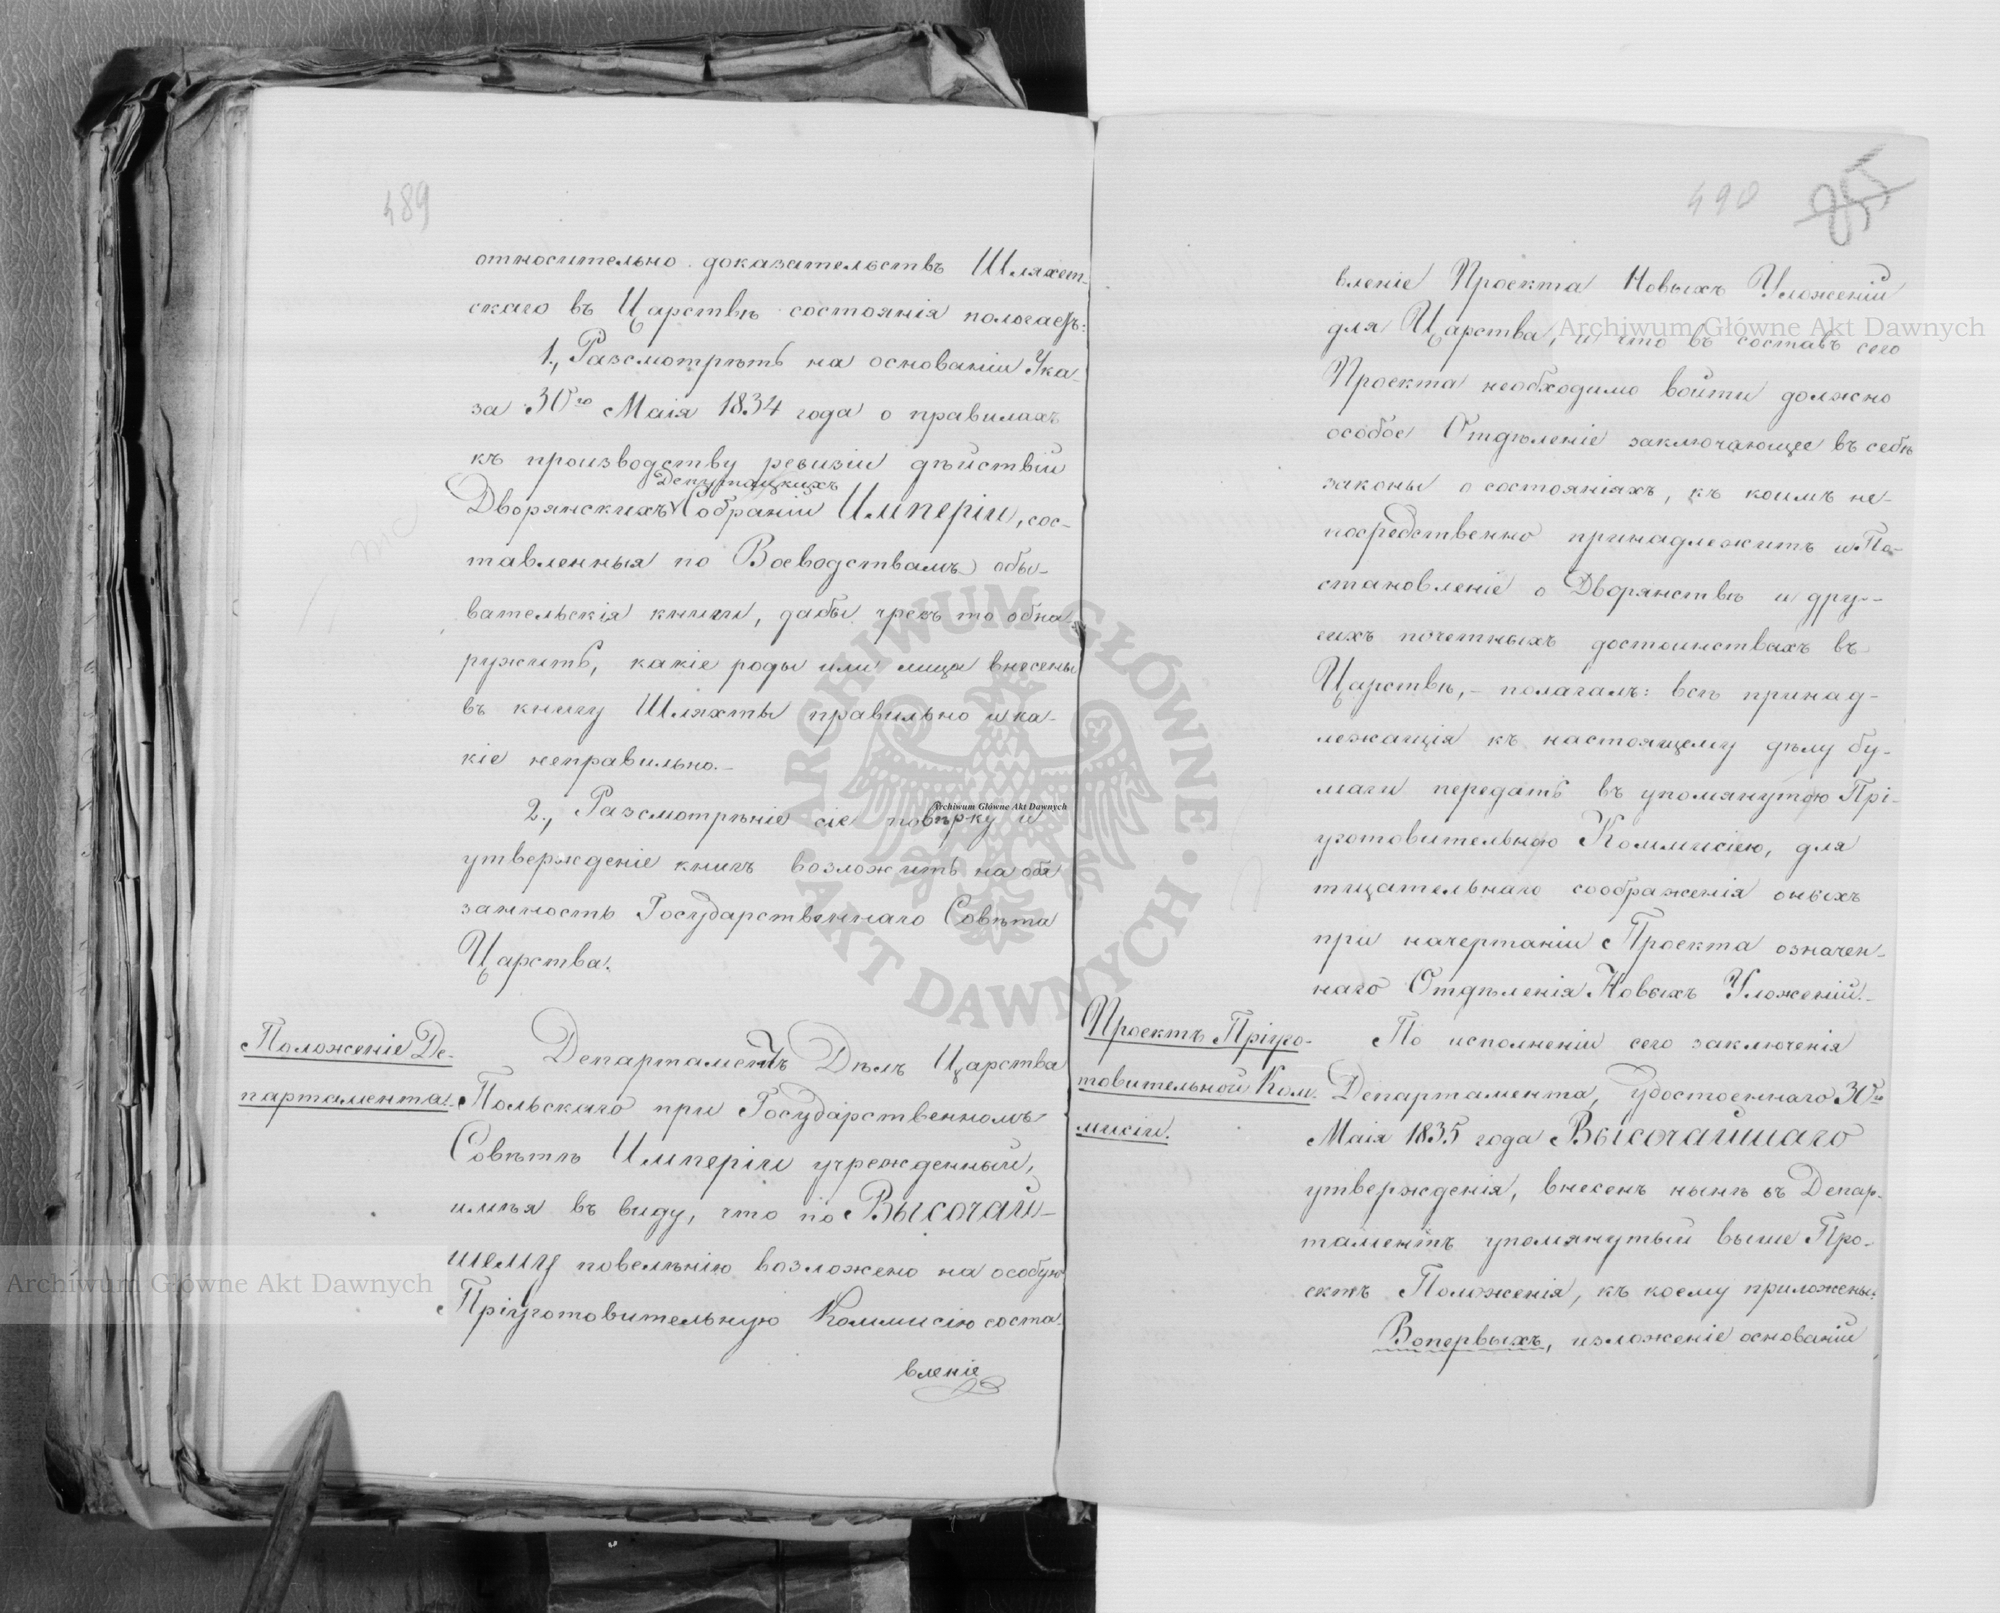 489
относительно доказательствъ Шляхет-
скаго въ Царствѣ состоянія полагаетъ:
1., Разсмотрѣть на основаніи Ука-
за 30го Маія 1834 года о правилахъ
къ производству ревизіи дѣйствій
Депутатскихъ
Дворянскихъ Собраній Имперіи, сос-
тавленныя по Воеводствамъ обы-
вательскія книги, дабы чрезъ то обна-
ружить, какіе роды или лица внесены
въ книгу Шляхты правильно и ка-
кіе неправильно.-
2., Разсмотрѣніе сіе повѣрку и
утвержденіе книгъ возложить на обя
занность Государственнаго Совѣта
Царства.
Положеніе Де-
партамента.
Департаментъ Дѣлъ Царства
Польскаго при Государственномъ
Совѣтѣ Имперіи учрежденный,
имѣя въ виду, что по Высочай-
шему повелѣнію возложено на особую
Пріуготовительную Коммисію соста-
вленіе
490 85
вленіе Проекта Новыхъ Уложеній
для Царства, и что въ составъ сего
Проекта необходимо войти должно
особое Отдѣленіе заключающее въ себѣ
законы о состояніяхъ, къ коимъ не-
посредственно принадлежитъ и По-
становленіе о Дворянствѣ и дру-
гихъ почетныхъ достоинствахъ въ
Царствѣ,- полагалъ: всѣ принад-
лежащія къ настоящему дѣлу бу-
маги передать въ упомянутою Прі-
уготовительною Коммисіею, для
тщательнаго соображенія оныхъ
при начертаніи Проекта означен-
наго Отдѣленія Новыхъ Уложеній.-
Проектъ Пріуго-
товительной Ком-
мисіи.
По исполненіи сего заключенія
Департамента, удостоеннаго 30го
Маія 1835 года Высочайшаго
утвержденія, внесенъ нынѣ въ Депар-
таментъ упомянутый выше Про-
ектъ Положенія, къ коему приложены:
Вопервыхъ, изложеніе основаній
Archiwum Główne Akt Dawnych
Archiwum Główne Akt Dawnych
Archiwum Główne Akt Dawnych
ARCHIWUM GŁÓWNE • AKT DAWNYCH •